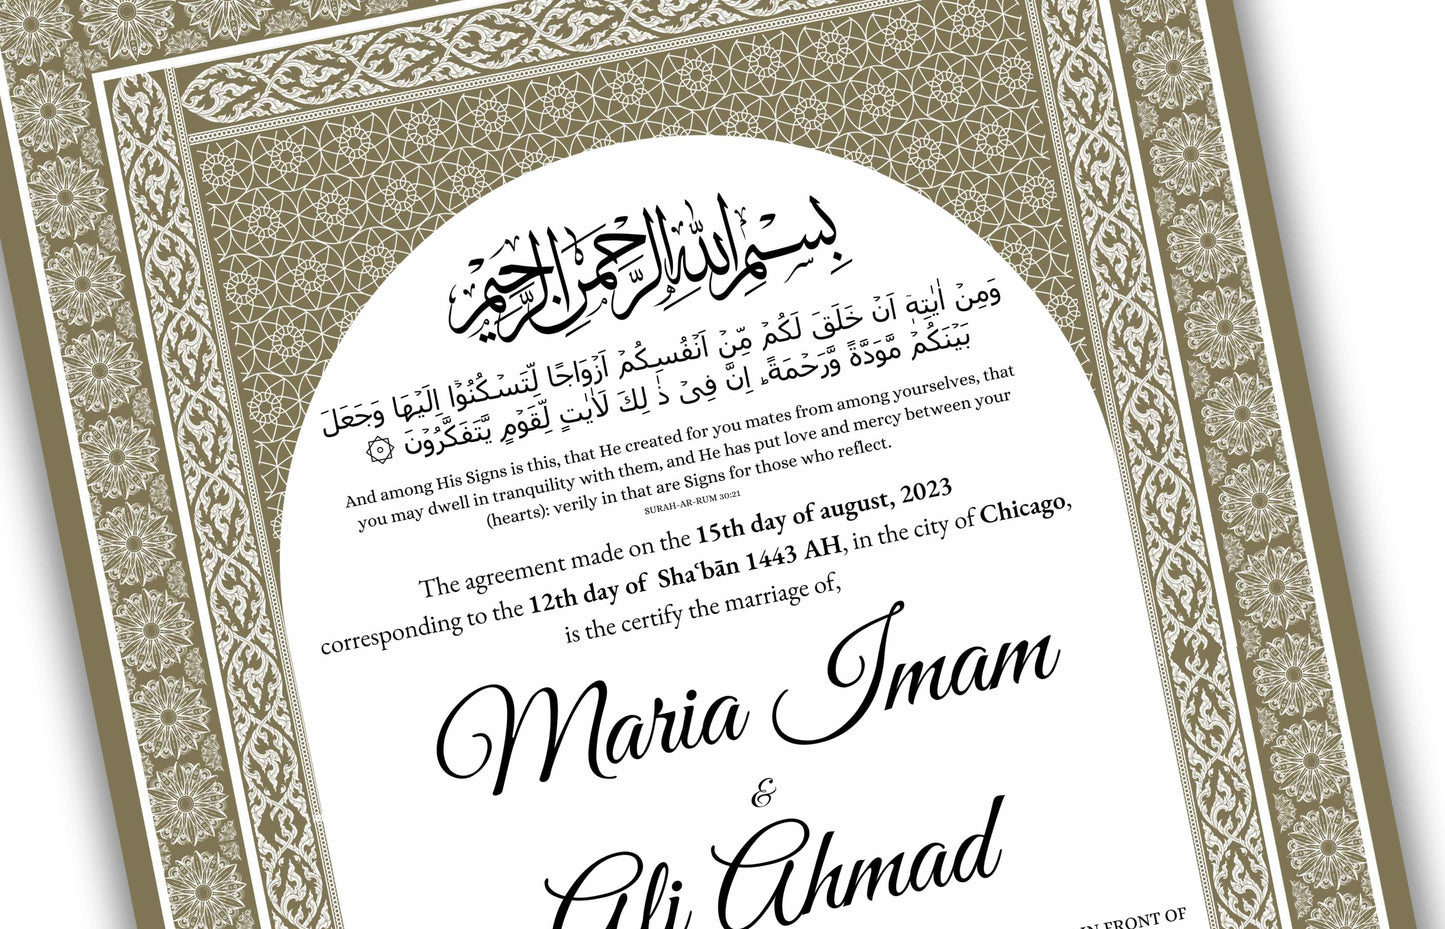 بِسْمِ اللهِ الرَّحْمَنِ الرَّحِيْمِ
وَمِنْ اٰيٰتِهٖۤ اَنْ خَلَقَ لَكُمْ مِّنْ اَنْفُسِكُمْ اَزْوَاجًا لِّتَسْكُنُوْۤا اِلَيْهَا وَجَعَلَ
بَيْنَكُمْ مَّوَدَّةً وَّرَحْمَةً ؕ اِنَّ فِىْ ذٰ لِكَ لَاٰيٰتٍ لِّقَوْمٍ يَّتَفَكَّرُوْنَ
And among His Signs is this, that He created for you mates from among yourselves, that
you may dwell in tranquility with them, and He has put love and mercy between your
(hearts): verily in that are Signs for those who reflect.
SURAH-AR-RUM 30:21
The agreement made on the 15th day of august, 2023
corresponding to the 12th day of Shaʿbān 1443 AH, in the city of Chicago,
is the certify the marriage of,
Maria Imam
&
Ali Ahmad
IN FRONT OF